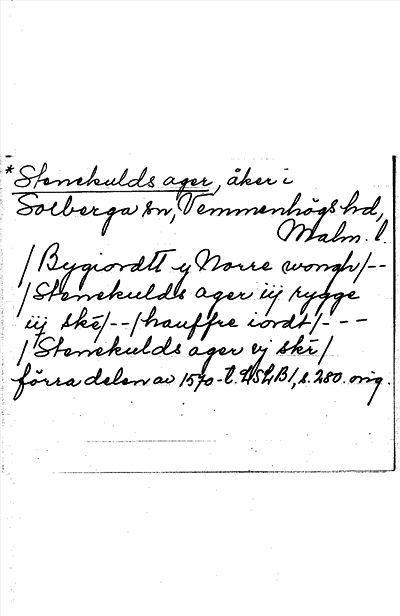 *Stenekulds ager, åker i
Solberga sn, Vemmenhögs hd,
Malm. l.
/ Bygiordtt y Norre wongh/--
/ Stenekulds ager iij rygge
iij skē/--/hauffre iordt/---
/ Stenekulds ager vj skē/
förra delen av 1570-t. LSLB1, s. 280. orig.